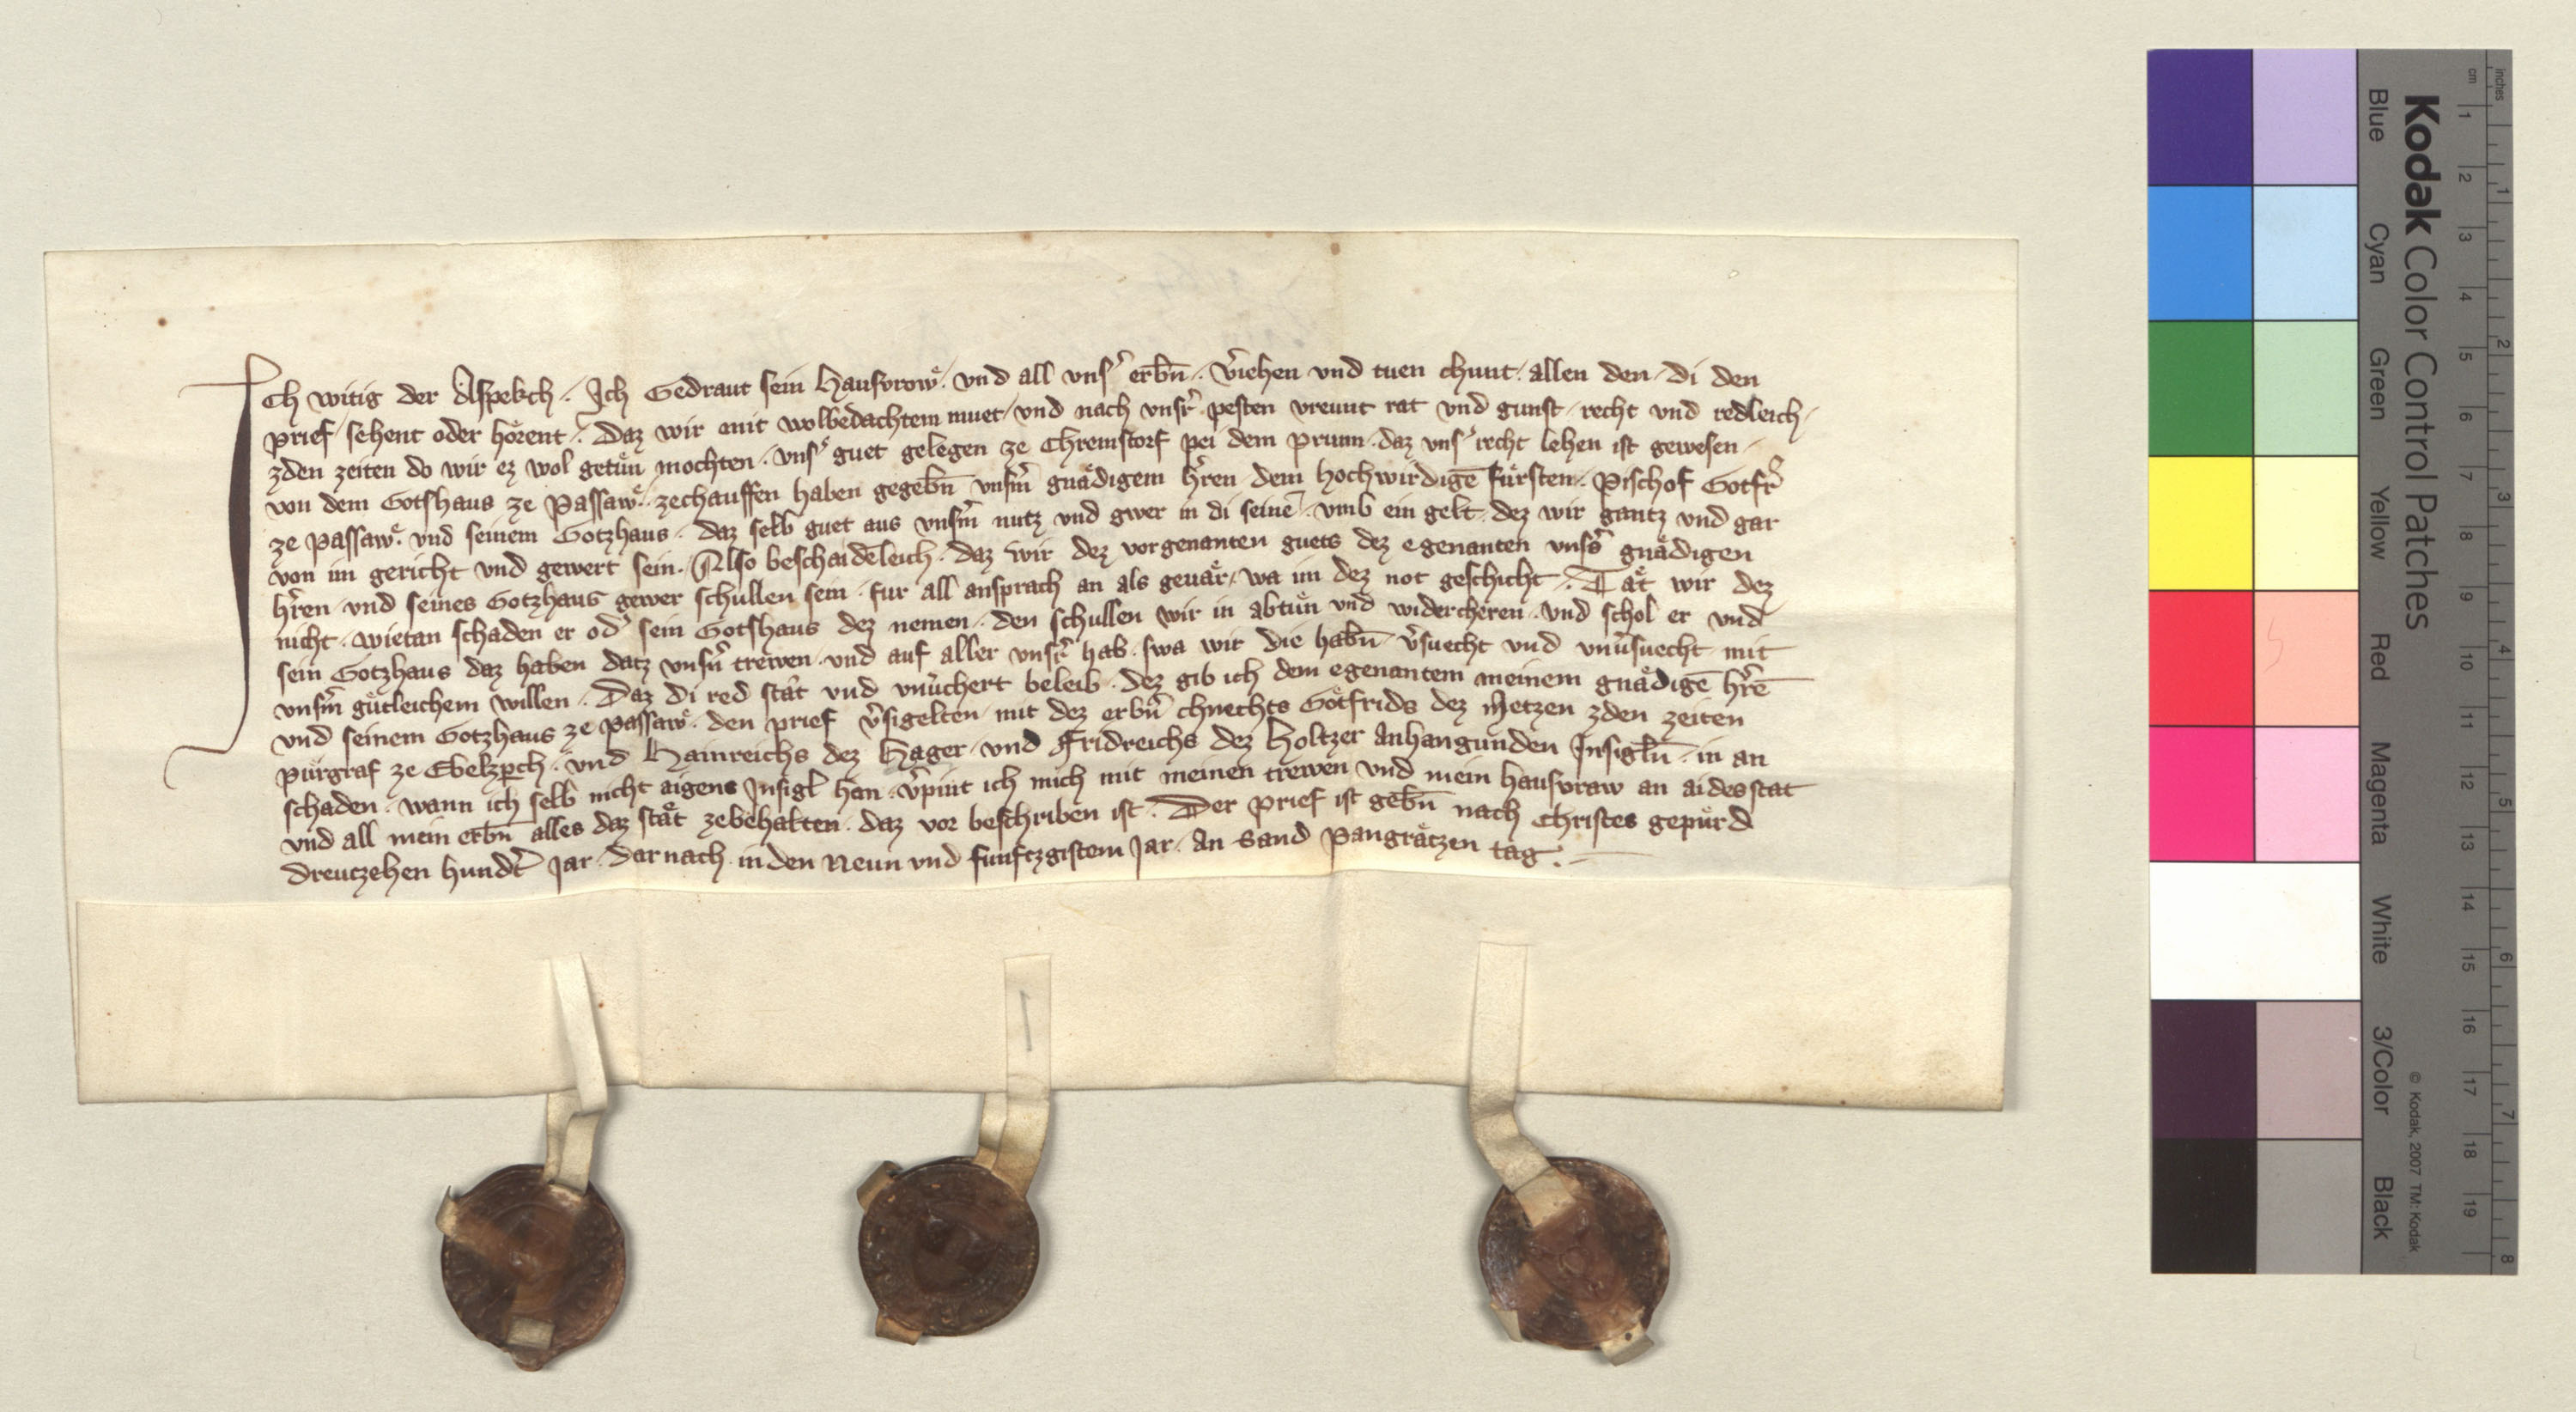 Ich witig der Aspekch. Ich Gedraut sein Hausvrowͤ. vnd all vnsͬ erbn̄. v̾iehen vnd tuen chunt. allen den. di den
prief sehent oder hoͤrent. Daz wir mit wolbedachtem muet. vnd nach vnsr̾ pesten vreunt rat vnd gunst. recht vnd redleich.
zden zeiten do wir ez wol getuͤn mochten. vns̾ guet gelegen ze Chremstorf pei dem prunn. daz vns̾ recht lehen ist gewesen.
von dem Gotshaus ze Passawͤ. zechauffen haben gegebn̄ vnsm̾ gnaͤdigem hr̾en dem hochwirdigē fuͤrsten. Pischof Gotfr̾
ze Passawͤ. vnd seinem Gotzhaus. daz selb guet aus vnsm̾ nutz vnd gwer in di seinē. vmb ein gelt. dez wir gantz vnd gar
von im gericht vnd gewert sein. Also beschaidēleich. daz wir dez vorgenanten guets dez egenanten vnss̾ gnaͤdigen
hr̾en. vnd seines Gotzhaus gewer schullen sein. fur all ansprach an als geuaͤr. wa im dez not geschicht. Taͤt wir dez
nicht. wietan schaden er od̾ sein Gotshaus dez nemen. den schullen wir in abtuͤn vnd widercheren. vnd schol er vnd
sein Gotzhaus daz haben datz vnsn̾ trewen. vnd auf aller vnsr̾ hab. swa wir die habn̄. v̾suecht vnd vnv̾suecht mit
vnsm̾ guͤtleichem willen. Daz di red staͤt vnd vnv̾chert beleib. dez gib ich dem egenantem meinem gnaͤdigē hr̾ē
vnd seinem Gotzhaus ze Passawͤ. den prief v̾sigelten mit dez erbn̾ chnechts Goͤtfrids dez Metzen zden zeiten
puͤrgraf ze Ebelzpch. vnd Hainreichs dez Hager. vnd Fridreichs dez Holtzer Anhangunden Insigln̄. in an
schaden. wann ich selb nicht aigens Insigl han. v̾pint ich mich mit meinen trewen vnd mein hausvraw an aidesstat
vnd all mein erbn̄ alles daz staͤt zebehalten. daz vor beschriben ist. Der prief ist gebn̄ nach Christes gepuͤrd
dreutzehen hundt̾ Jar. darnach in den Neun vnd funftzgistem Jar. an Sand Pangraͤtzen tag.
Kodak Color Control Patches
Blue Cyan Green Yellow Red Magenta White 3/Color Black
© Kodak, 2007 TM: Kodak
inches 1 2 3 4 5 6 7 8
cm 1 2 3 4 5 6 7 8 9 10 11 12 13 14 15 16 17 18 19